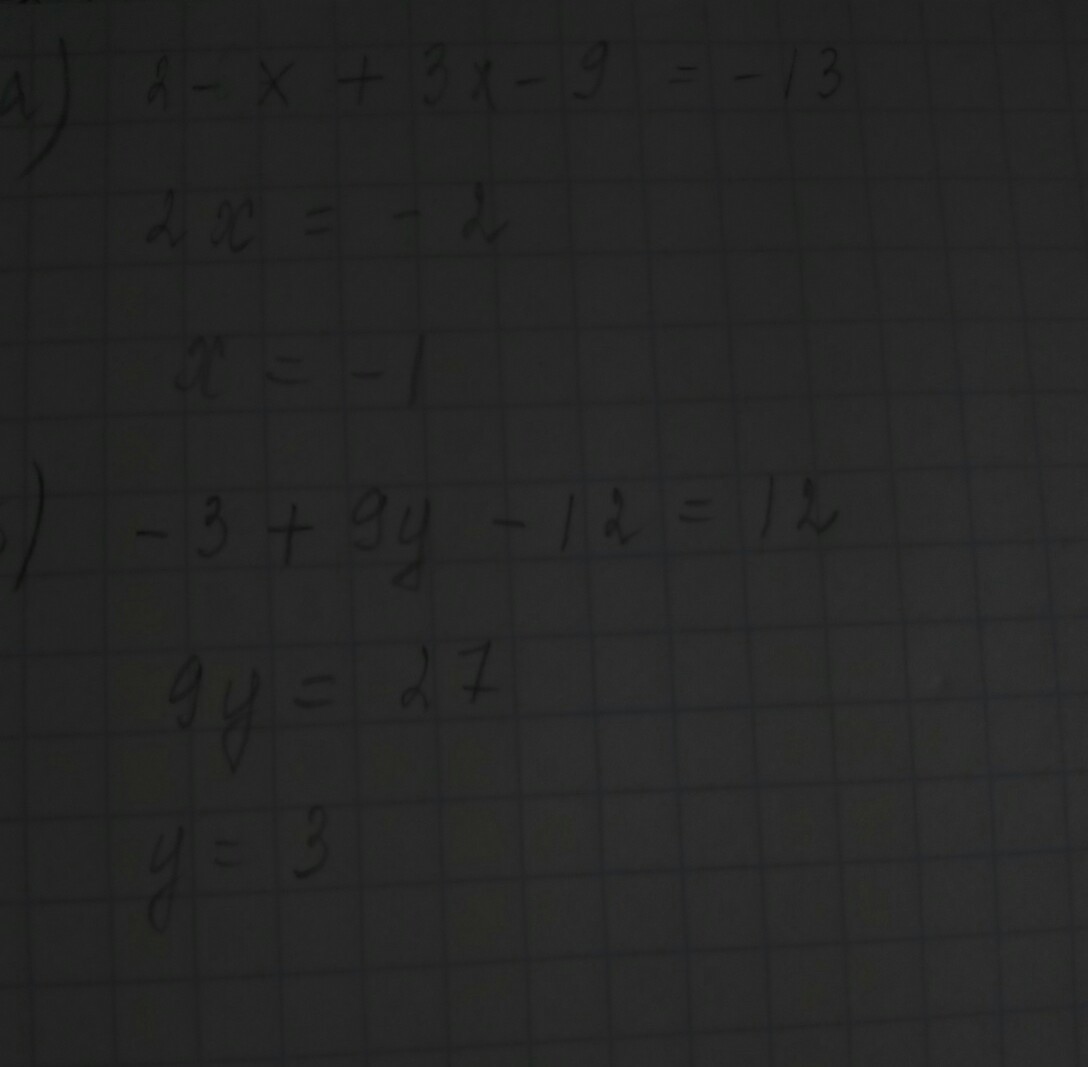 а) 2 - x + 3x - 9 = -13
2x = - 2
x = - 1
б) - 3 + 9y - 12 = 12
9y = 27
y = 3